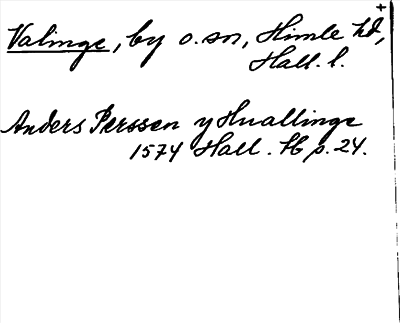 Valinge, by o. sn, Himle hd,
Hall. l.
Anders Perssen y Huallinge
1574 Hall. Hb p. 24.